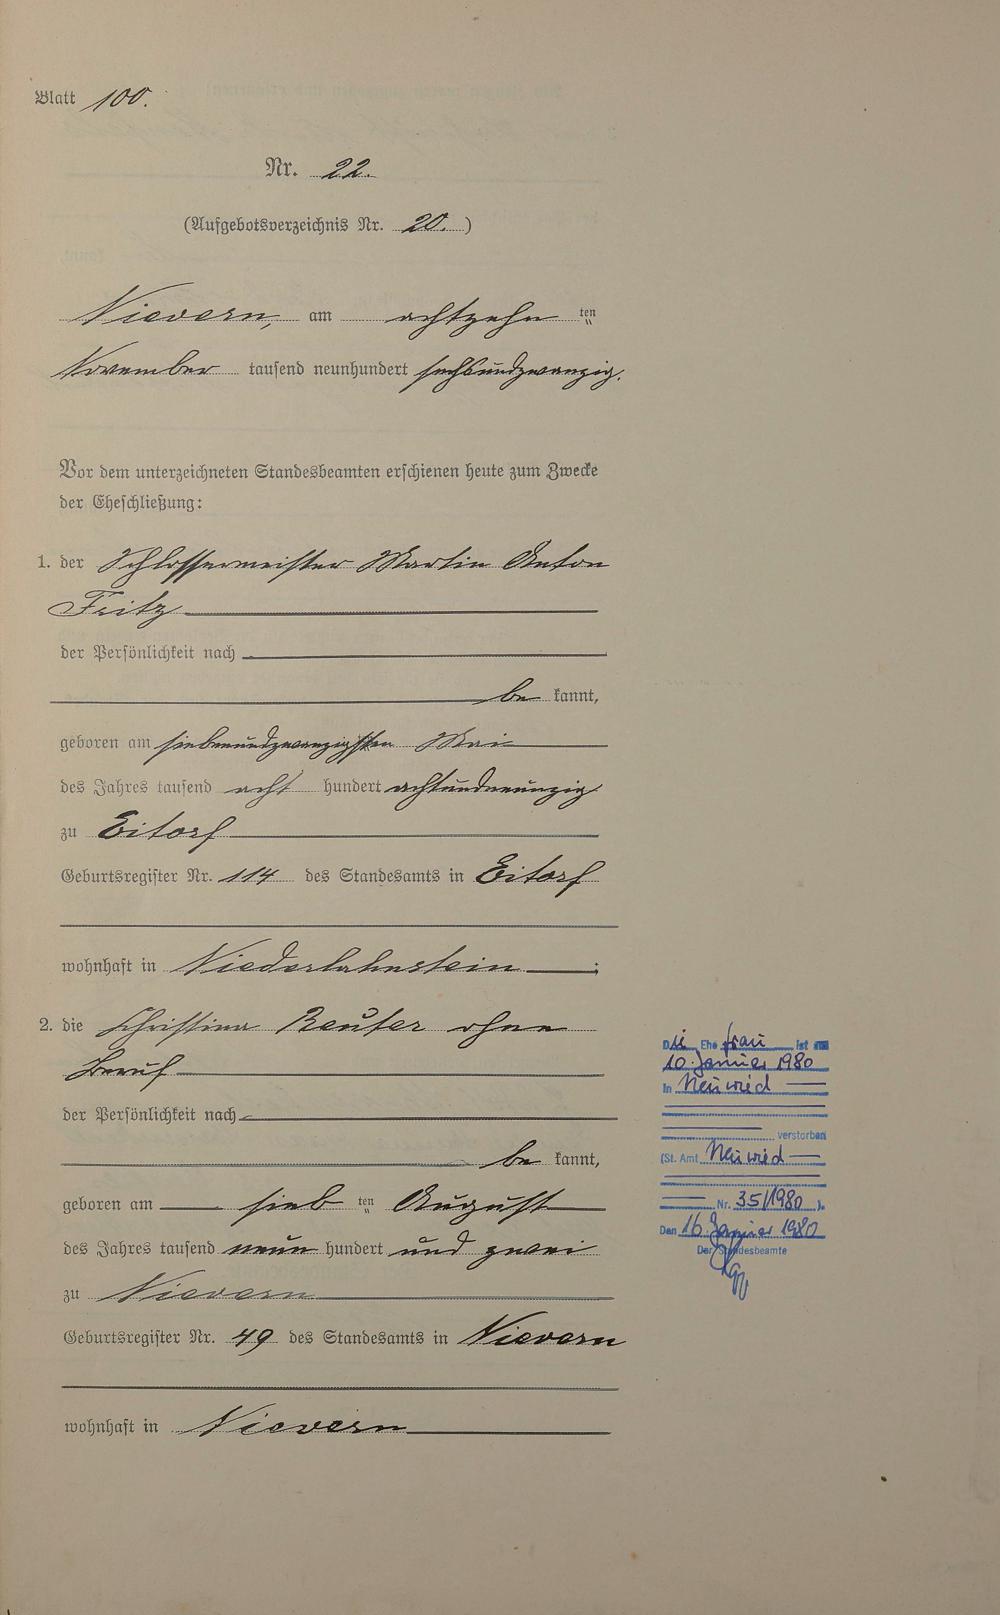 Blatt 100.
Nr. 22.
(Aufgebotsverzeichnis Nr. 20.)
Nievern, am achtzehn ten
November tausend neunhundert sechsundzwanzig.
Vor dem unterzeichneten Standesbeamten erschienen heute zum Zwecke
der Eheschließung:
1. der Schlossermeister Martin Anton
Fritz
der Persönlichkeit nach
be kannt,
geboren am siebenundzwanzigsten Mai
des Jahres tausend acht hundert achtundneunzig
zu Eitorf
Geburtsregister Nr. 114 des Standesamts in Eitorf
wohnhaft in Niederlahnstein ;
2. die Christina Reuter ohne
Beruf
der Persönlichkeit nach
be kannt,
geboren am sieb ten August
des Jahres tausend neun hundert und zwei
zu Nievern
Geburtsregister Nr. 49 des Standesamts in Nievern
wohnhaft in Nievern
Die Ehefrau ist am
10. Januar 1980
in Neuwied
verstorben
(St. Amt Neuwied
Nr. 35/1980 ).
Den 16. Januar 1980
Der Standesbeamte